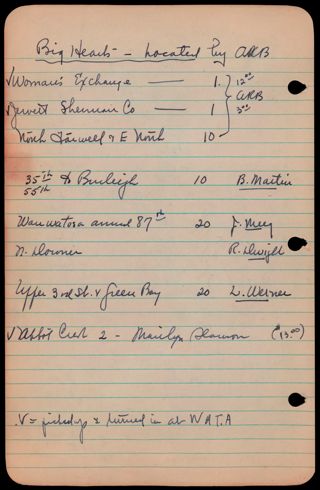 Big Hearts - Located by ARB
√Woman's Exchange — 1. 12⁰⁰
Jewett Sherman Co — 1 ARB 3⁰⁰
North Farwell & E North 10
35th to Burleigh 10 B. Martin
55th
Wauwatosa around 87th 20 J. Mey
N. Downer R. Dwight
Upper 3rd St. & Green Bay 20 L. Weisner
√Abbot Crest 2 - Marilyn ($13.00)
√= picked up & turned in at W.A.T.A